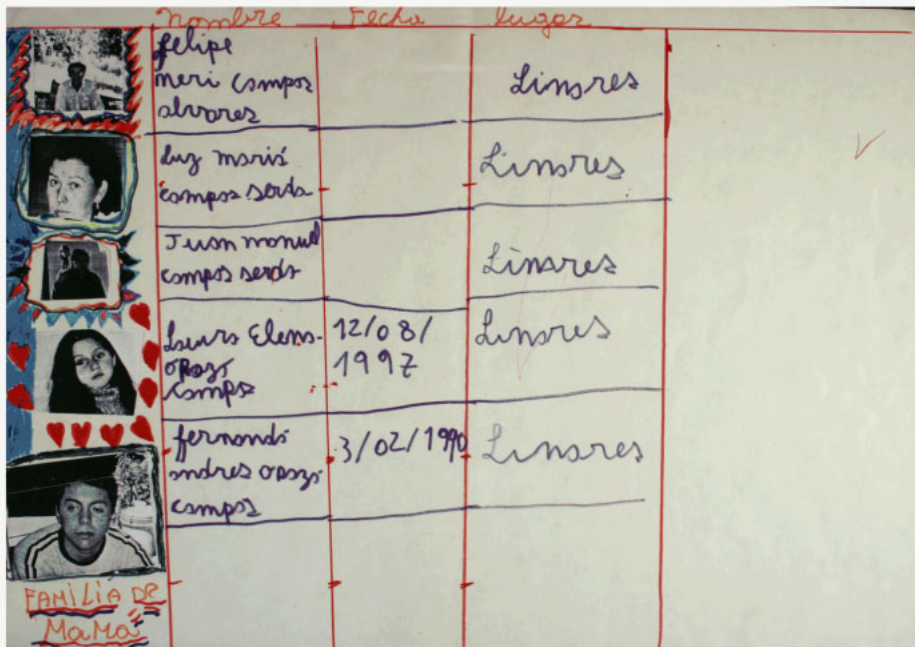 nombre Fecha lugar
felipe
meri campos
alvares
Linares
Luz mariá
campos serda
Linares
Juan manuel
campos serda
Linares
Laura Elena
opazo
campos
12/08/
1997
Linares
fernando
andres opazo
campos
3/02/1990
Linares
FAMILIA DE
MaMá